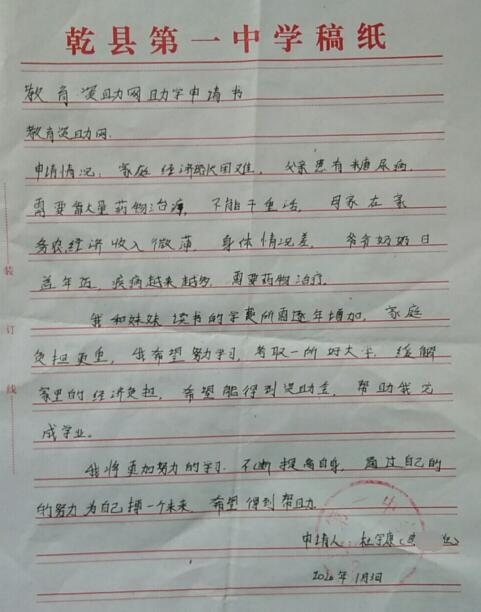 乾县第一中学稿纸
教育资助网助学申请书
教育资助网.
申请情况: 家庭 经济状况困难, 父亲患有糖尿病,
需要省大量药物治疗, 不能干重活, 母亲 在 家
务农,经济 收入微薄, 身体情况差, 爷爷奶奶日
益年迈, 疾病越来越多, 需要药物治疗,
我和妹妹 读书的学费所需逐年增加, 家庭
负担更重, 我希望努力学习, 考取一所好大学, 缓解
家里的 经济负担, 希望能得到资助金, 帮助我完
成学业。
我将更加努力的学习, 不断提高自身, 通过自己的
的努力 为自己搏一个未来, 希望得到帮助,
申请人
2020年1月3日
装
订
线